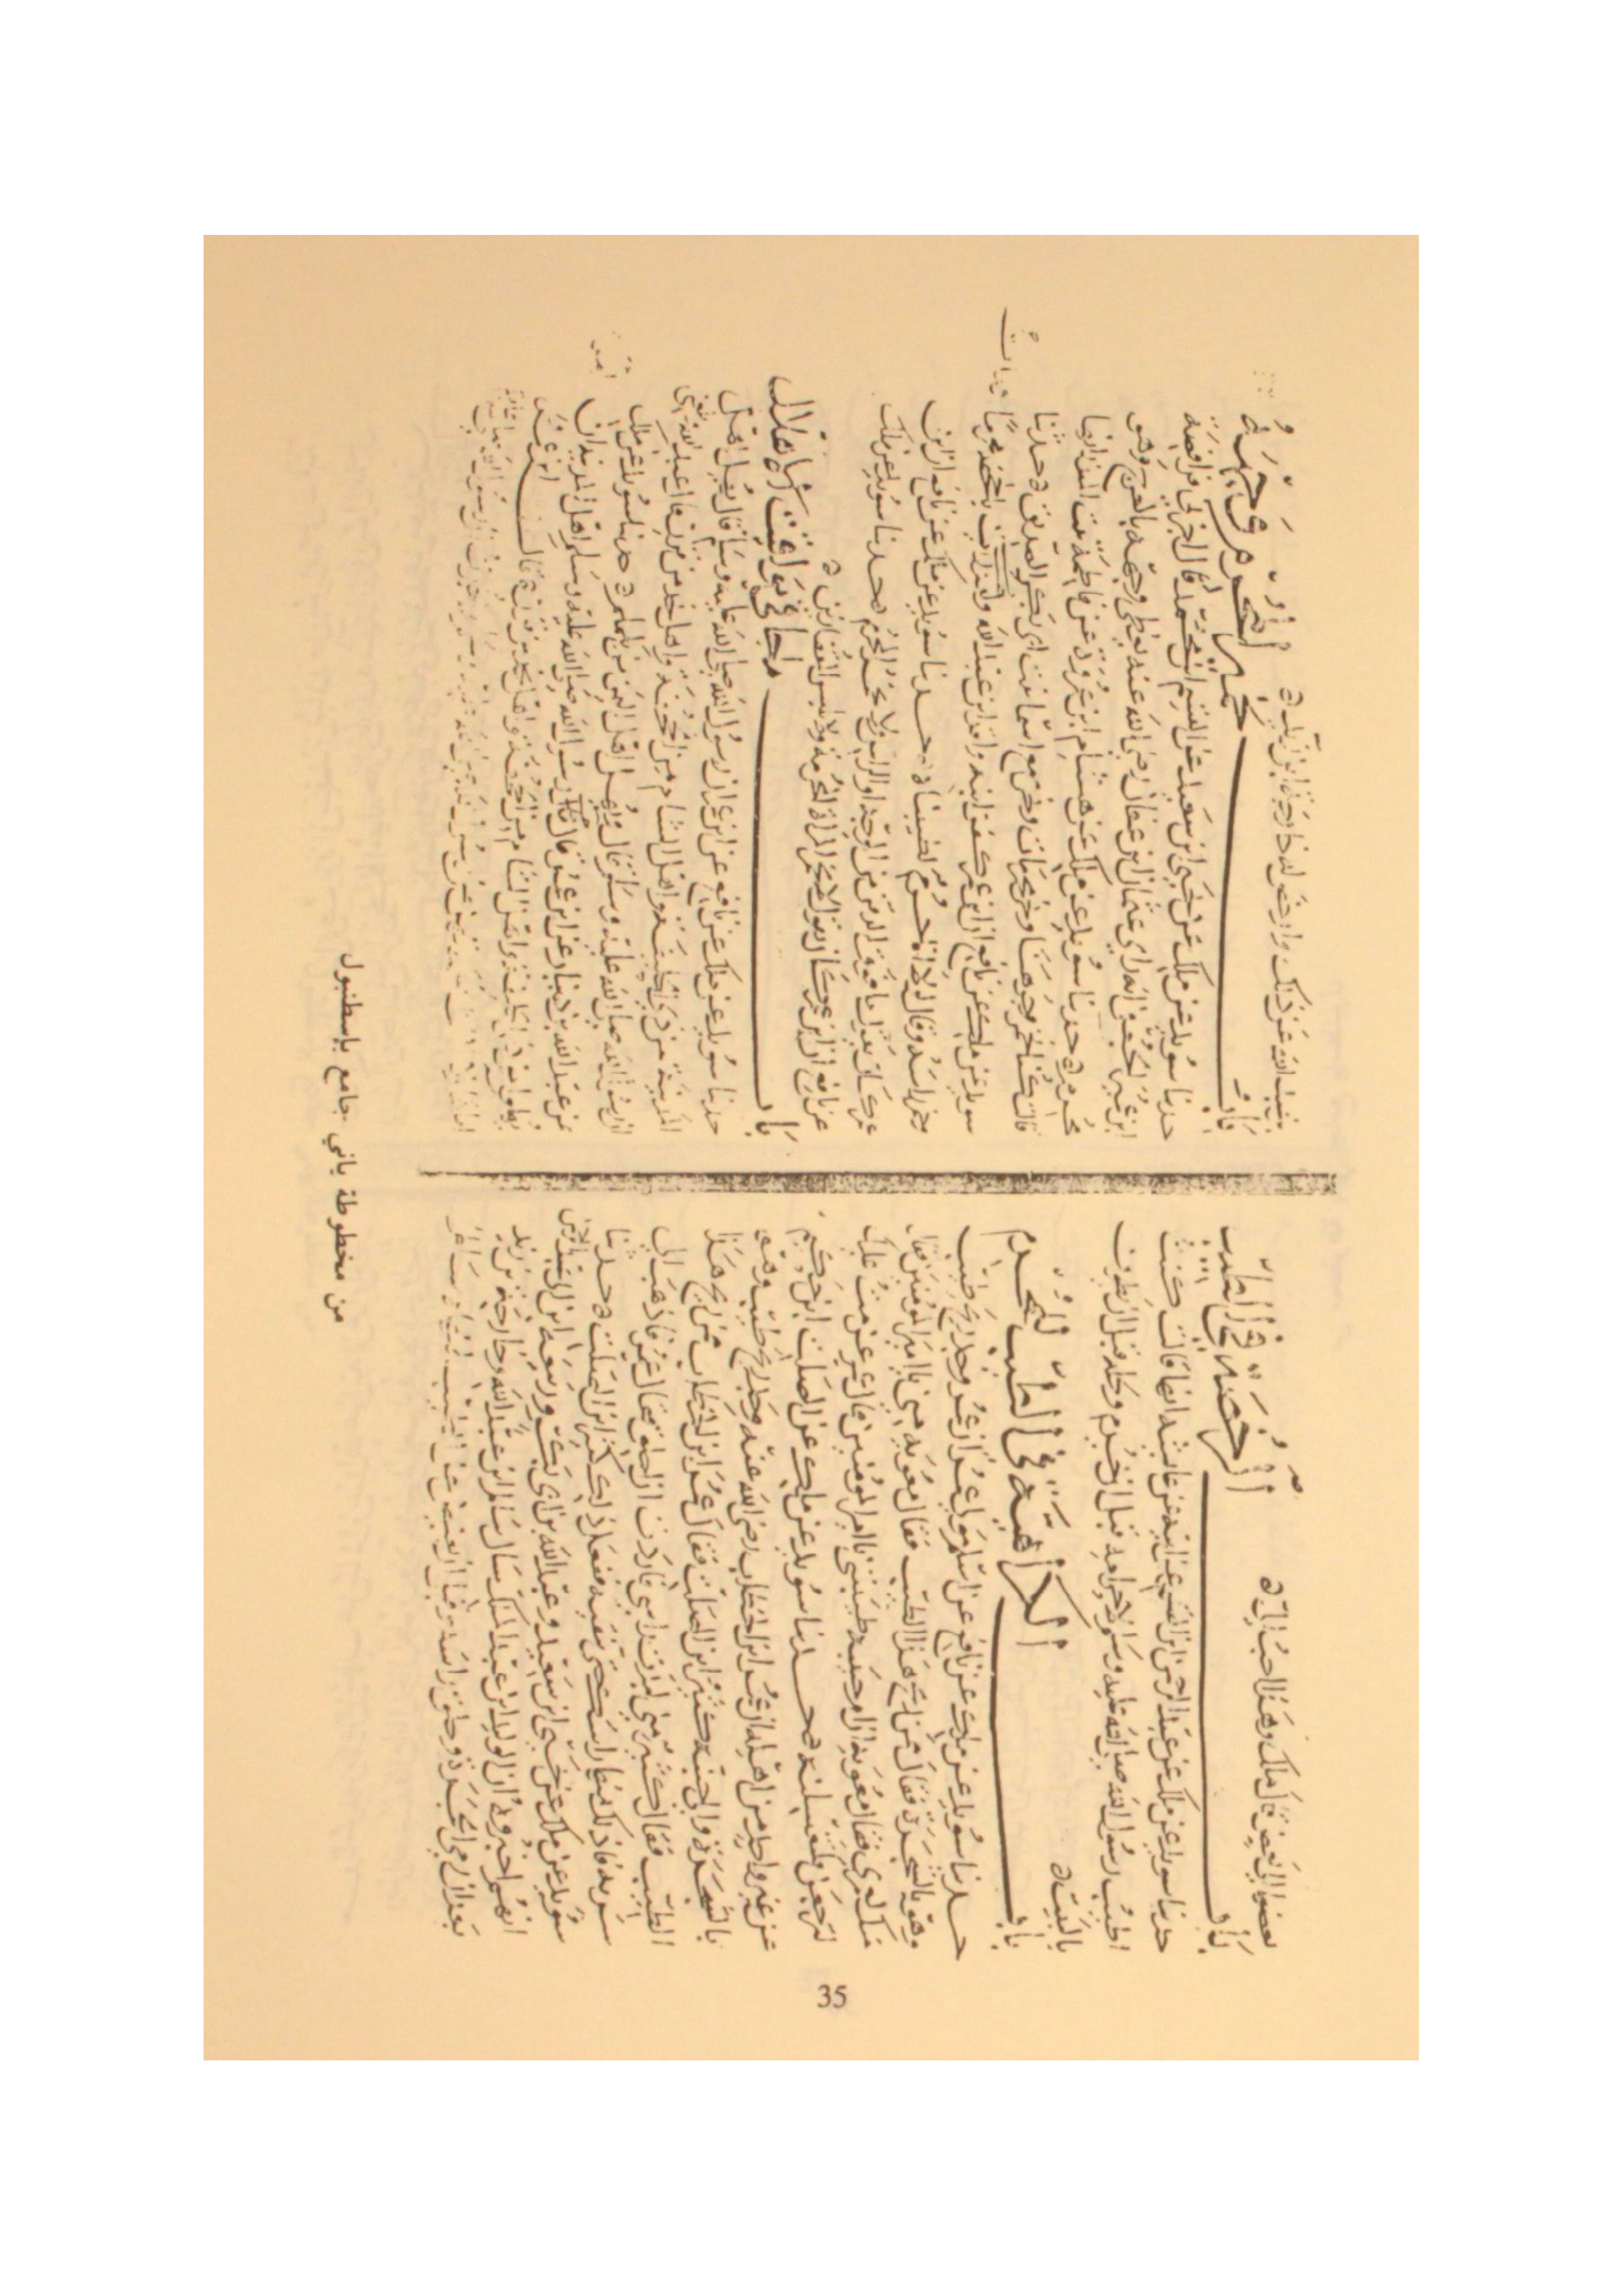 بعضها الى بعض قال ملك وهذا احب الي
باب الرخصة في الطيب
حدثنا سويد عن ملك عن عبد الرحمن ابن القسم عن ابيه عن عائشة انها قالت كنت
اطيب رسول الله صلى الله عليه وسلم لاحرامه قبل ان يحرم ولحله قبل ان يطوف
بالبيت
باب الكراهية في الطيب للمحرم
حدثنا سويد عن ملك عن نافع عن اسلم مولى عمر ان عمر وجد ريح طيب
وهو بالشجرة فقال ممن ريح هذا الطيب فقال معوية مني يا امير المؤمنين فقال
منك لعمري فقال معوية ان ام حبيبة طيبتني يا امير المؤمنين قال عمر عزمت عليك
لترجعن فلتغسلنه حدثنا سويد عن ملك عن الصلت ابن زبيد
عن غير واحد من اهله ان عمر ابن الخطاب رضي الله عنه وجد ريح طيب وهو
بالشجرة والى جنبه كثير ابن الصلت فقال عمر ابن الخطاب ممن ريح هذا
الطيب فقال كثير مني لبدت راسي فاردت ان احلق فقال عمر فاذهب الى
شربة فادلك منها راسك حتى تنقيه ففعل ذلك كثير ابن الصلت حدثنا
سويد عن ملك عن يحيى ابن سعيد وعبد الله بن ابي بكر وربيعة ابن ابي عبد الرحمن
انهم اخبروه ان الوليد ابن عبد الملك سال سالم ابن عبد الله وخارجة بن زيد
بعد ان رمى الجمرة وحلق راسه وقبل ان يفيض عن الطيب فنهاه سالم
بن عبد الله عن ذلك وارخص له خارجة ابن زيد
باب تخمير المحرم وجهه
حدثنا سويد عن ملك عن يحيى ابن سعيد عن القسم ابن محمد قال اخبرني الفرافصة
ابن عمير الحنفي انه راى عثمان ابن عفان رضي الله عنه يغطي وجهه بالعرج وهو
محرم حدثنا سويد عن ملك عن هشام ابن عروة عن فاطمة بنت المنذر انها
قالت كنا نخمر وجوهنا ونحن محرمات ونحن مع اسما بنت ابي بكر الصديق حدثنا
سويد عن ملك عن نافع ان ابن عمر كفن ابنه واقد ابن عبد الله ومات بالجحفة محرما
وخمر راسه وقال لولا انا حرم لطيبناه حدثنا سويد عن ملك عن نافع ان ابن
عمر كان يقول ما فوق الذقن من الوجه او الراس فلا يخمره المحرم حدثنا سويد عن ملك
عن نافع ان ابن عمر كان يقول لا تتنقب المراة المحرمة ولا تلبس القفازين
باب ما جا في مواقيت الاهلال
حدثنا سويد عن ملك عن نافع عن ابن عمر ان رسول الله صلى الله عليه وسلم قال يهل اهل
المدينة من ذي الحليفة واهل الشام من الجحفة واهل نجد من قرن قال عبد الله بلغني
ان رسول الله صلى الله عليه وسلم قال ويهل اهل اليمن من يلملم حدثنا سويد عن ملك
عن عبد الله بن دينار عن ابن عمر قال امر رسول الله صلى الله عليه وسلم اهل المدينة ان
يهلوا من ذي الحليفة واهل الشام من الجحفة واهل نجد من قرن قال ابن عمر
من مخطوطة باني جامع بإسطنبول
35